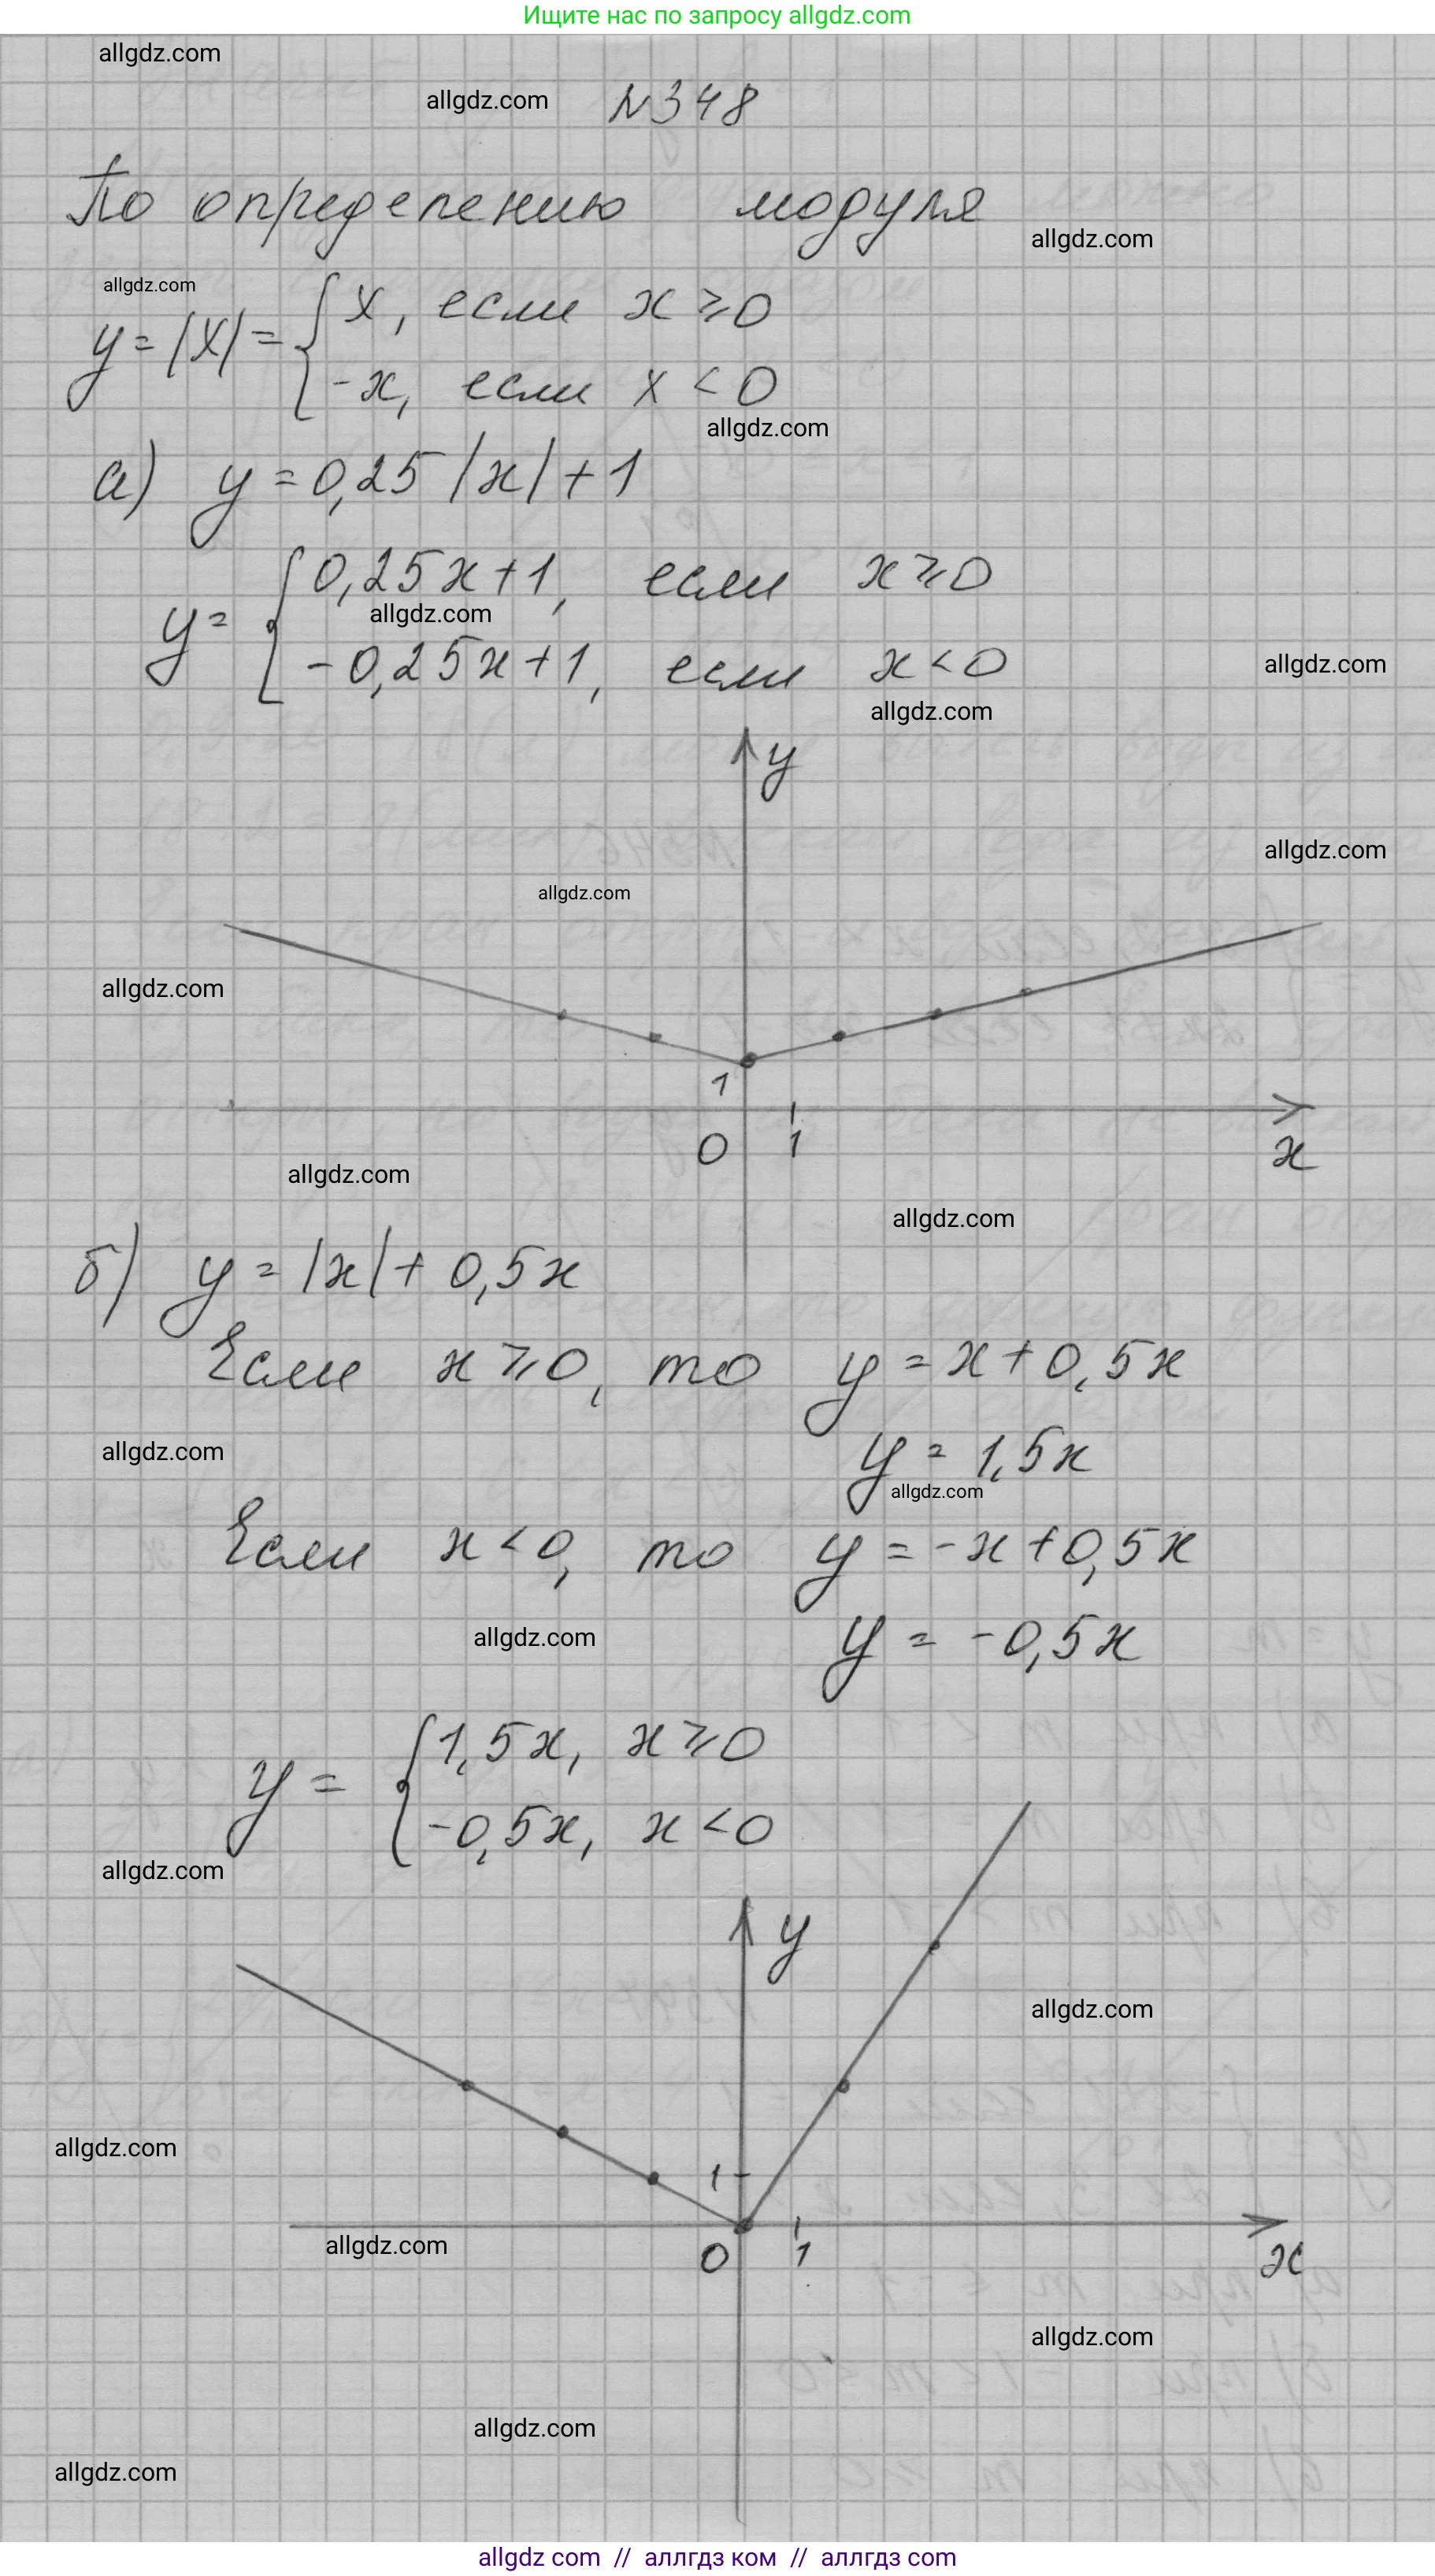 Ищите нас по запросу allgdz.com
allgdz.com
allgdz.com
№348
По определению модуля
allgdz.com
allgdz.com
y=|x|= { x, если x ≥ 0
-x, если x < 0
allgdz.com
а) y = 0,25|x|+1
y= { 0,25x+1, если x≥0
allgdz.com
-0,25x+1, если x<0
allgdz.com
allgdz.com
y
allgdz.com
allgdz.com
allgdz.com
1
0 1 x
allgdz.com
allgdz.com
б) y = |x|+ 0,5x
Если x ≥ 0, то y = x + 0,5x
allgdz.com
y = 1,5x
allgdz.com
Если x < 0, то y = -x + 0,5x
allgdz.com
y = -0,5x
y = { 1,5x, x ≥ 0
-0,5x, x < 0
allgdz.com
y
allgdz.com
allgdz.com
1
allgdz.com
0 1 x
allgdz.com
allgdz.com
allgdz.com
allgdz com // аллгдз ком // аллгдз com